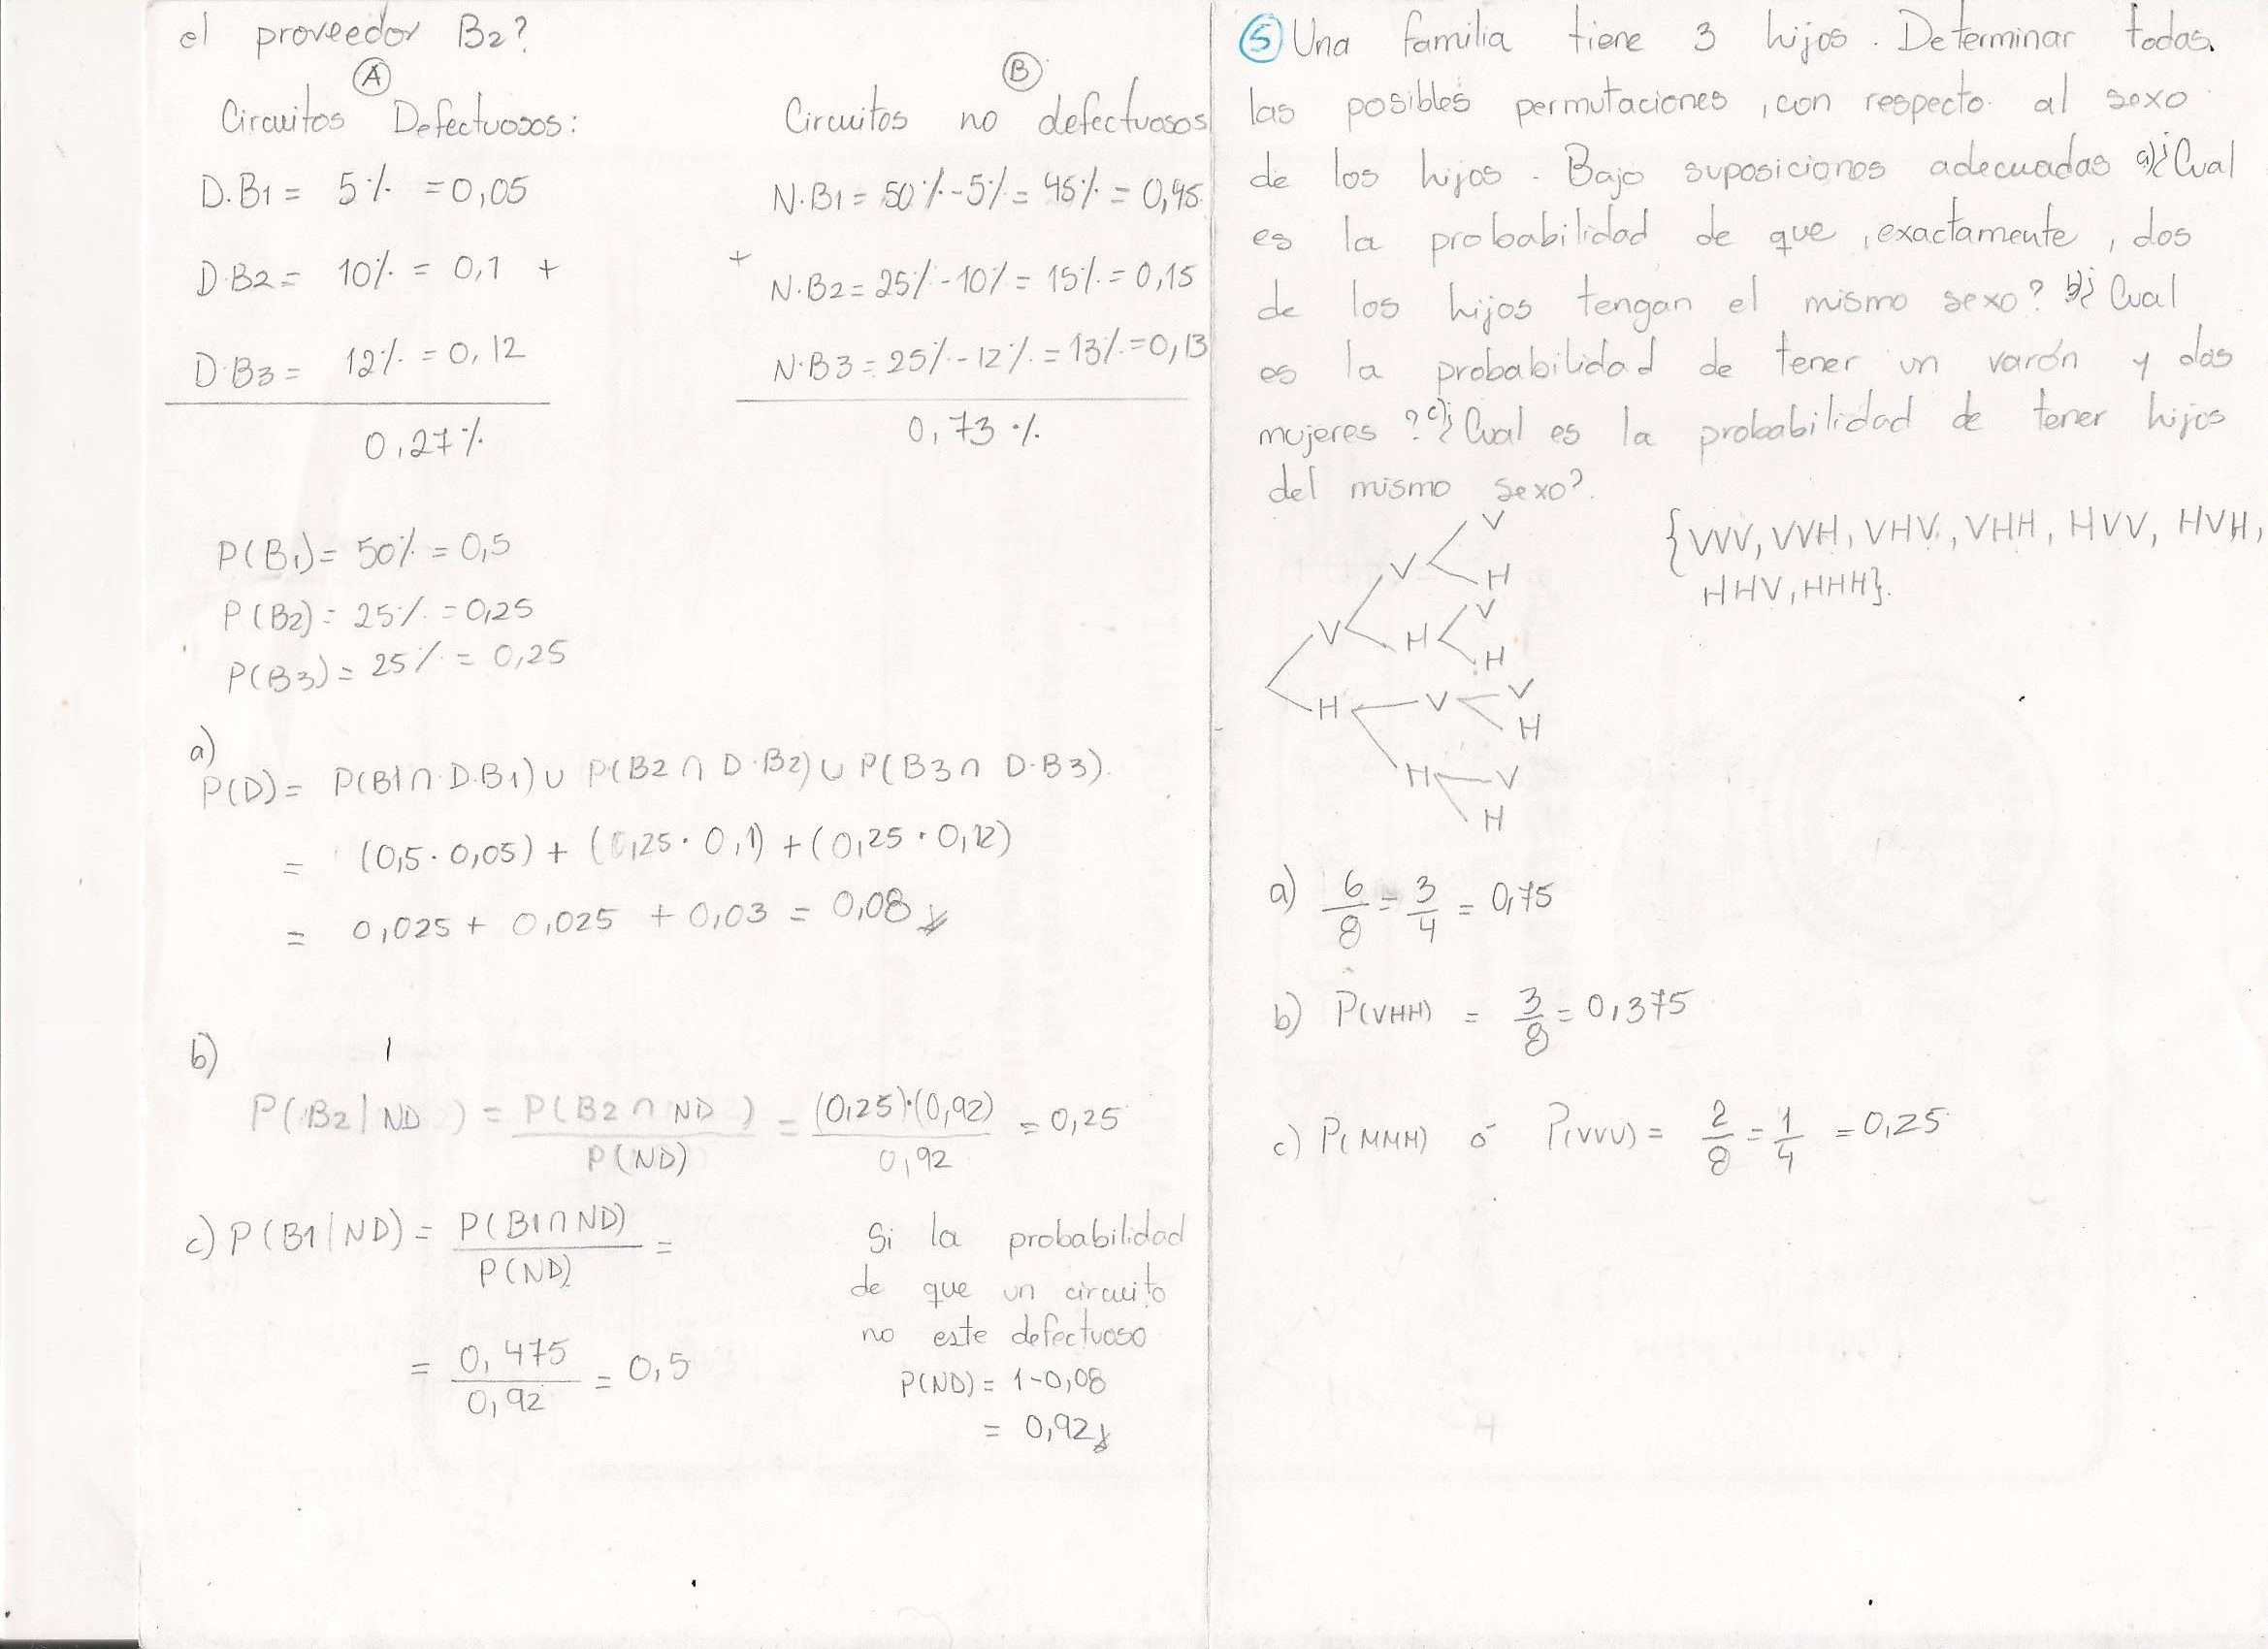 el proveedor B2?
Ⓐ
Circuitos Defectuosos:
D.B1 = 5% = 0,05
D.B2 = 10% = 0,1 +
D.B3 = 12% = 0,12
0,27%
Ⓑ
Circuitos no defectuosos
N.B1 = 50% - 5% = 45% = 0,45
+ N.B2 = 25% - 10% = 15% = 0,15
N.B3 = 25% - 12% = 13% = 0,13
0,73%
P(B1) = 50% = 0,5
P(B2) = 25% = 0,25
P(B3) = 25% = 0,25
a)
P(D) = P(B1 ∩ D.B1) ∪ P(B2 ∩ D.B2) ∪ P(B3 ∩ D.B3).
= (0,5 · 0,05) + (0,25 · 0,1) + (0,25 · 0,12)
= 0,025 + 0,025 + 0,03 = 0,08
b)
P(B2 | ND) = P(B2 ∩ ND) / P(ND) = (0,25)·(0,92) / 0,92 = 0,25
c) P(B1 | ND) = P(B1 ∩ ND) / P(ND) =
= 0,475 / 0,92 = 0,5
Si la probabilidad
de que un circuito
no este defectuoso
P(ND) = 1 - 0,08
= 0,92
⑤ Una familia tiene 3 hijos. Determinar todas.
las posibles permutaciones, con respecto al sexo
de los hijos. Bajo suposiciones adecuadas a)¿Cual
es la probabilidad de que, exactamente, dos
de los hijos tengan el mismo sexo? b)¿Cual
es la probabilidad de tener un varón y dos
mujeres? c)¿Cual es la probabilidad de tener hijos
del mismo sexo?.
{VVV, VVH, VHV, VHH, HVV, HVH,
HHV, HHH}.
V
V
H
V
V
H
H
H
V
V
H
H
V
H
a) 6/8 = 3/4 = 0,75
b) P(VHH) = 3/8 = 0,375
c) P(MMM) ó P(VVV) = 2/8 = 1/4 = 0,25